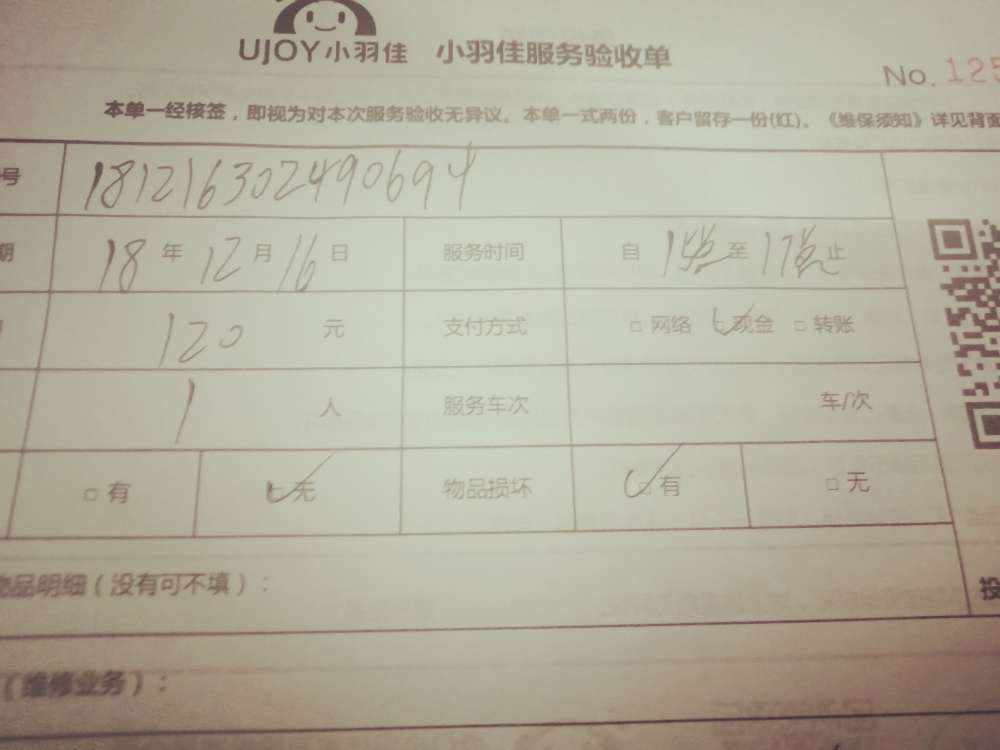 UJOY小羽佳 小羽佳服务验收单
No. 125
本单一经核签，即视为对本次服务验收无异议。本单一式两份，客户留存一份(红)。《维保须知》详见背面
号 181216302490694
期 18 年 12 月 16 日 服务时间 自 15点 至 17点 止
120 元 支付方式 □ 网络 ☑ 现金 □ 转账
1 人 服务车次 车/次
□ 有 ☑ 无 物品损坏 ☑ 有 □ 无
物品明细（没有可不填）：
（维修业务）：